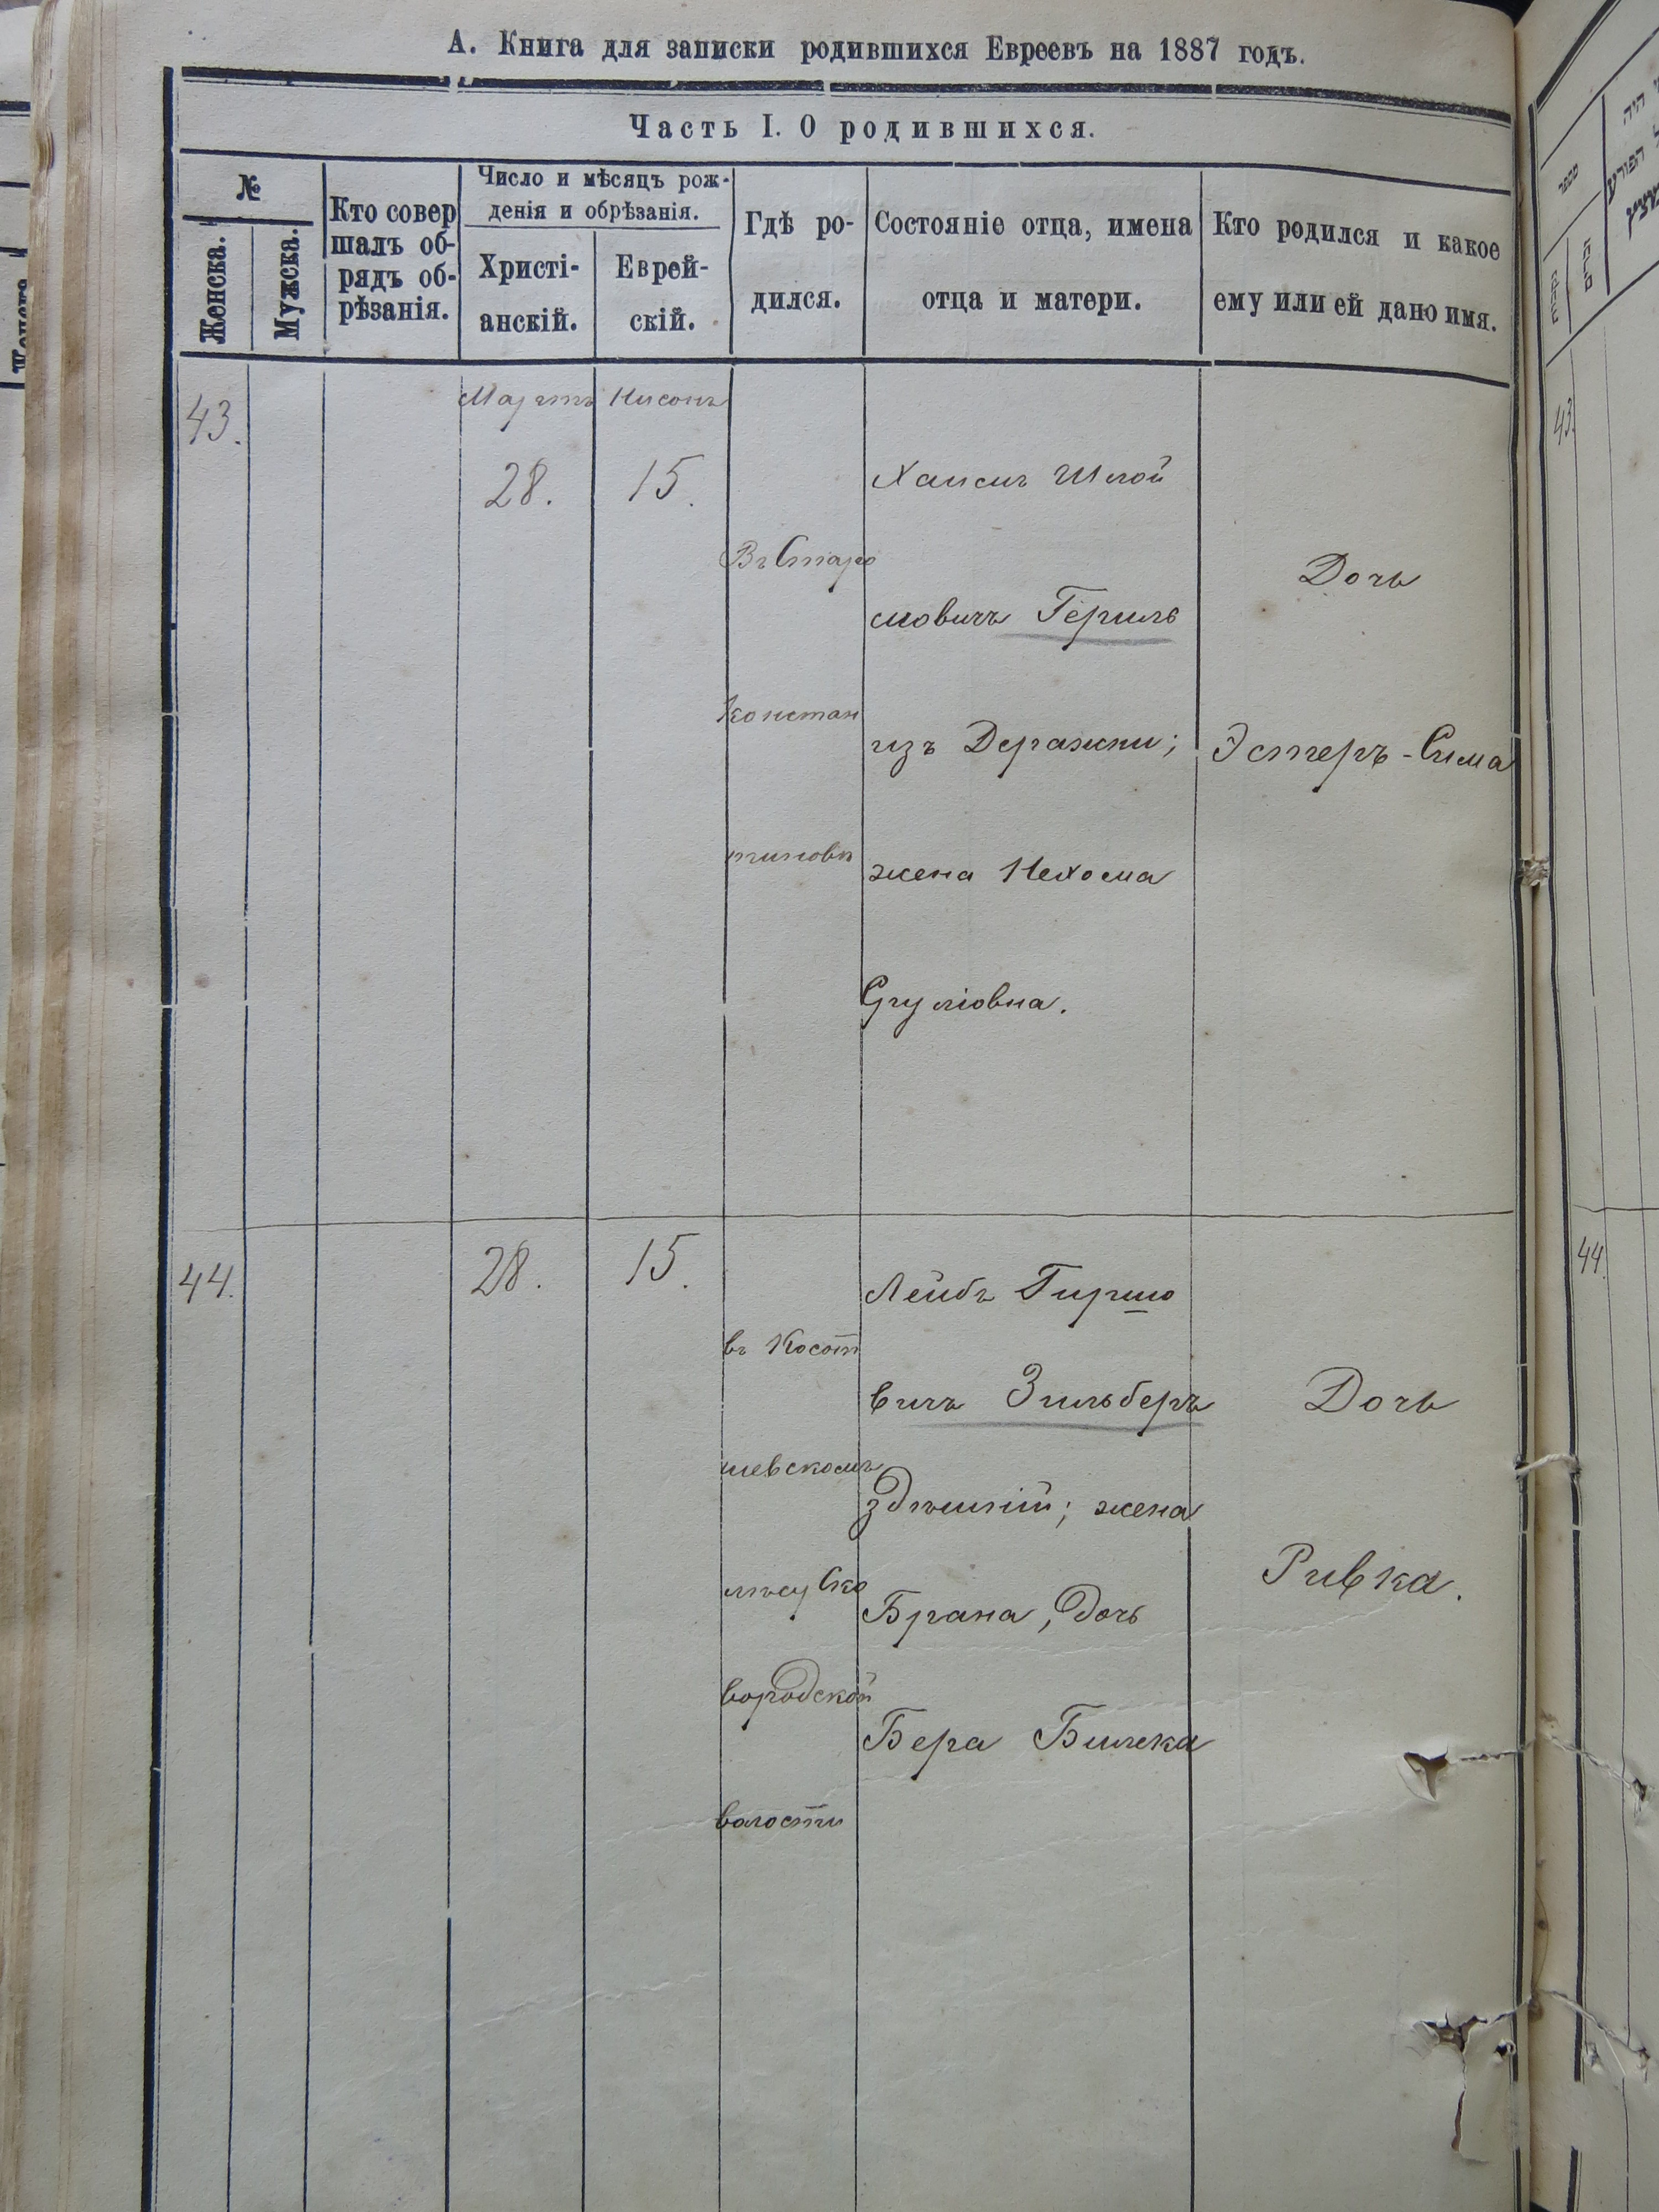 А. Книга для записки родившихся Евреевъ на 1887 годъ.
Часть I. О родившихся.
№
Женска.
Мужска.
Кто совер
шалъ об-
рядъ об-
рѣзанія.
Число и мѣсяцъ рож-
денія и обрѣзанія.
Христі-
анскій.
Еврей-
скій.
Гдѣ ро-
дился.
Состояніе отца, имена
отца и матери.
Кто родился и какое
ему или ей дано имя.
43.
Мартъ
28.
Нисонъ
15.
Въ Старо
констан
тиновѣ
Хаимъ Шлой
мовичъ
изъ Деражни;
жена Нехома
Сруліовна.
Дочь
Эстеръ-Сима
44.
28.
15.
въ
лѣсу
волости
Лейбъ Гиршо
вичъ Зильберъ
здѣшній; жена
Брана, дочь
Бера
Дочь
Ривка.
43.
44.